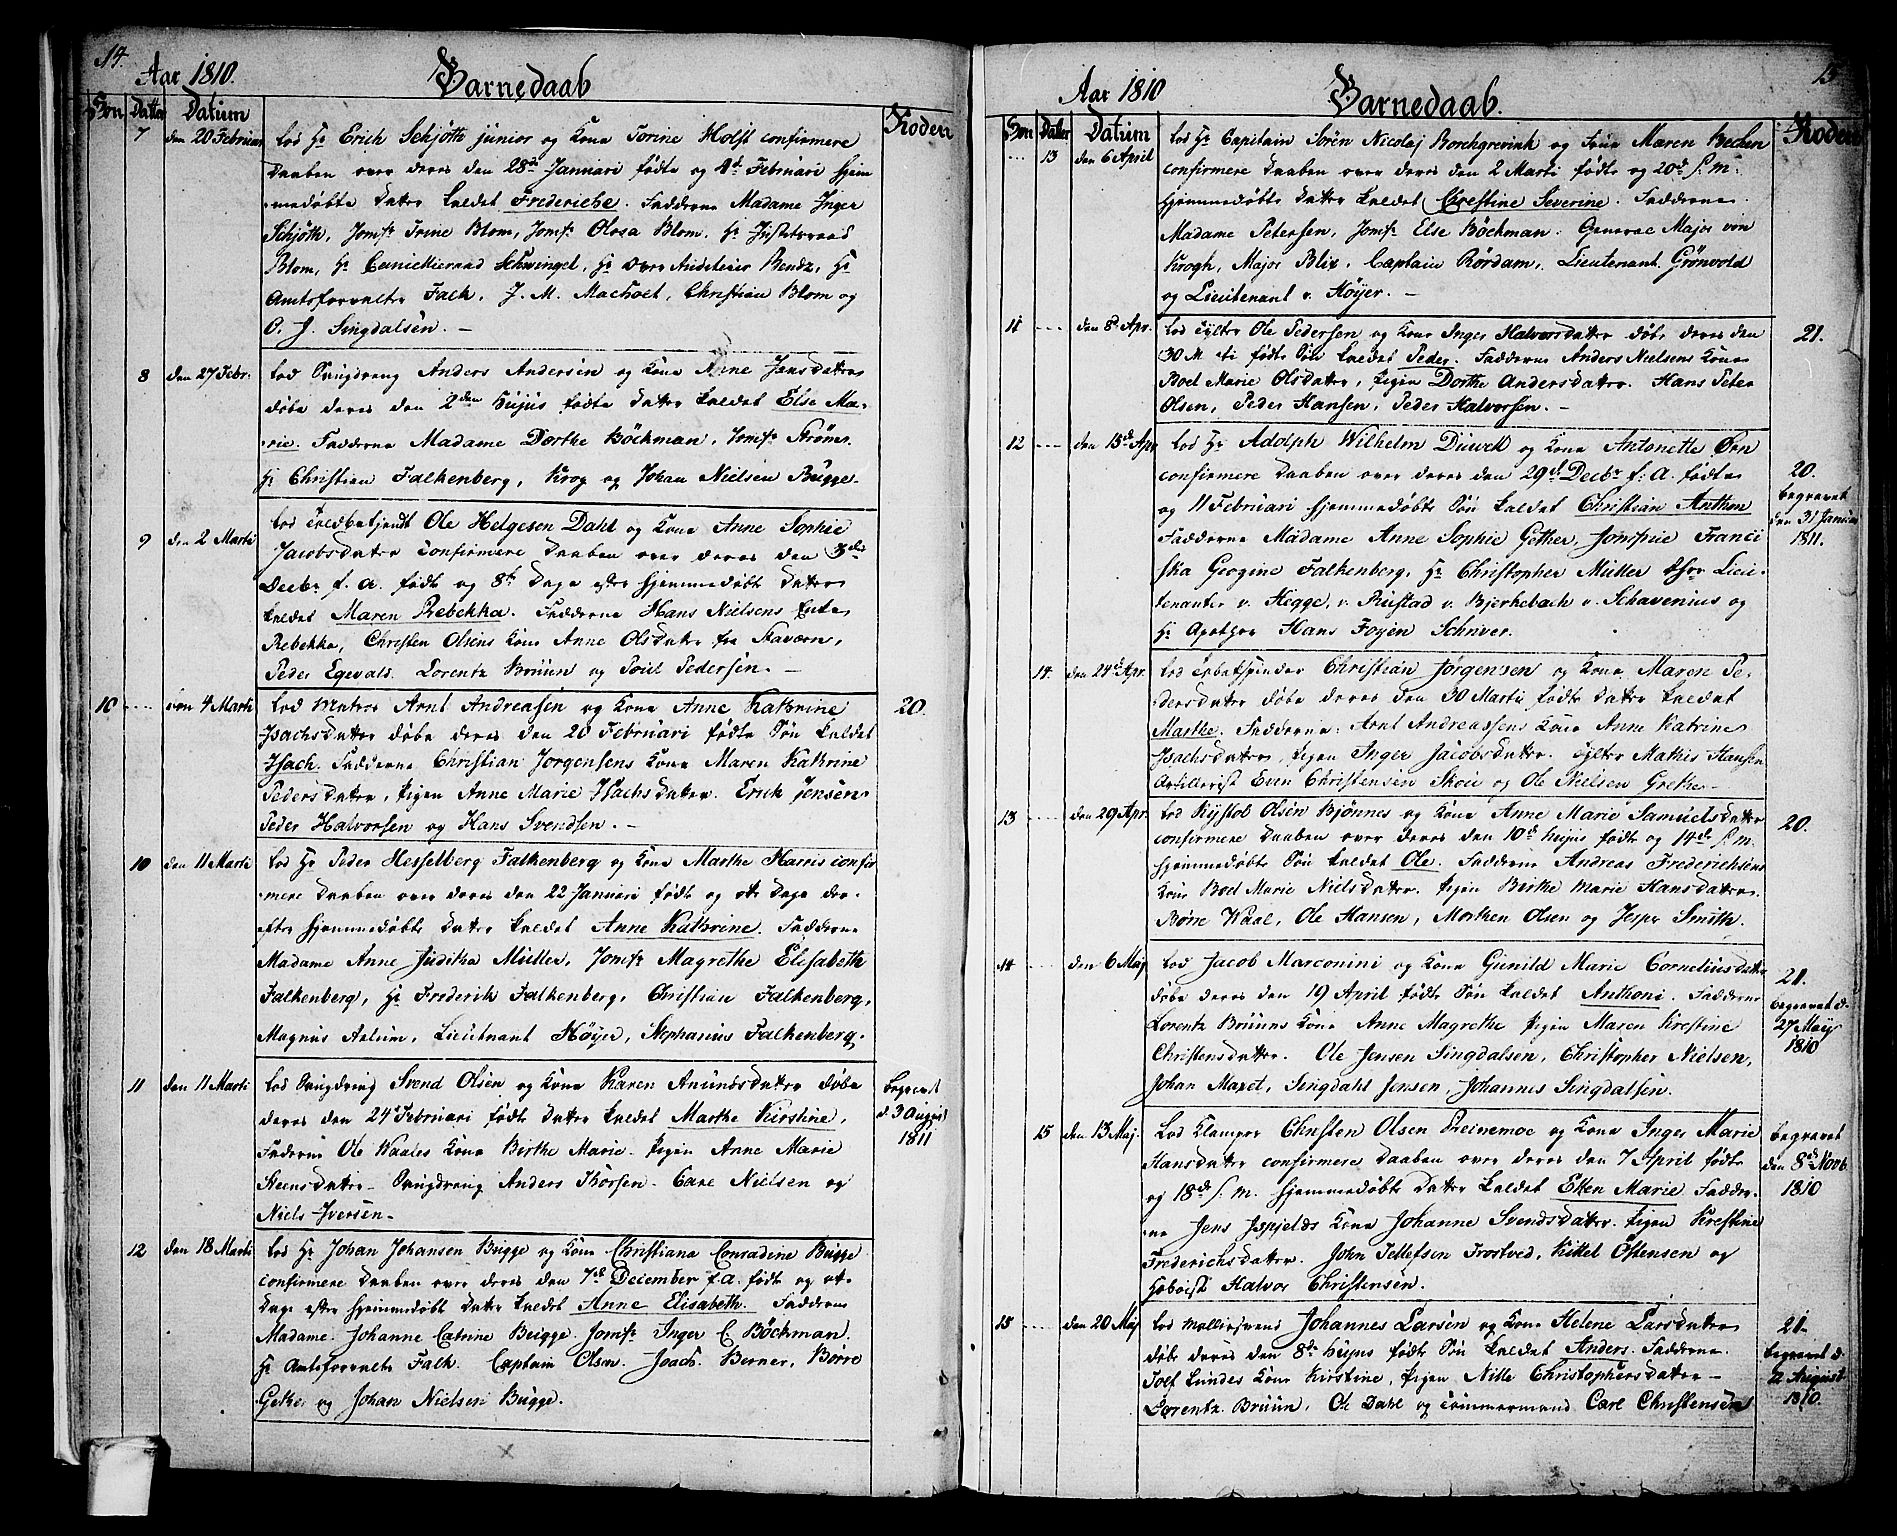 14.
Aar 1810. Barnedaab
Søn Datter Datum Koden
7 den 20 Februar Lod Hr Erich Schjøth junior og Kone Torine Holst confirmere
Daaben over deres den 28de Januari fødte og 1st Februari hjem
medøbte Datter kaldet Frederiche. Fadderne Madame Inger
Schjøth, Jomfr Trine Blom, Jomfr Olosa Blom. Hr Justitsraad
Blom, Hr Cancelliraad Schwingel, Hr Over Auditeur Bendz, Hr
Amtsforvalter Falk, J. M. Macholt, Christian Blom og
O. J. Singdalsen. —
8 den 27 Febr. Lod Anders Andersen og Kone Anne Jensdatter
døbe deres den 2den hujus fødte Datter kaldet Else Ma-
rie. Fadderne Madame Dorthe Böckman, Jomfr Strøm.
Hr Christian Falkenberg, Krog og Johan Nielsen Bugge.
9 den 2 Marti Lod Toldbetjendt Ole Helgesen Dahl og Kone Anne Sophie
Jacobsdatter confirmere Daaben over deres den 3die
Decbr f. A. fødte og 8te Dage efter hjemmedøbt Datter
kaldet Maren Rebekka. Fadderne Hans Nielsens Enke
Rebekka, Christen Olsens Kone Anne Olsdatter fra Staværn,
Peder Eqevald. Lorentz Bruun og Poul Pedersen. —
10 ---- den 4 Marti Lod Matros Arnt Andreasen og Kone Anne Kathrine 20.
Isachsdatter døbe deres den 20 Februari fødte Søn kaldet
Isach. Fadderne Christian Jorgensens Kone Maren Kathrine
Pedersdatter, Pigen Anne Marie Isachsdatter. Erich Jensen
Peder Halvorsen og Hans Svendsen. —
10 den 11 Marti Lod Hr Peder Hesselberg Falkenberg og Kone Marthe Harris confir
mere Daaben over deres den 22 Januari fødte og 8te Dage der-
efter hjemmedøbte Datter kaldet Anne Kathrine. Fadderne
Madame Anne Juditha Müller, Jomfr Magrethe Elisabeth
Falkenberg, Hr Frederik Falkenberg, Christian Falkenberg,
Magnus Aalum, Lieutnant Høyer, Stephanius Falkenberg.
11 den 11 Marti Lod Svend Olsen og Kone Karen Amundsdatter døbe Begravet
deres den 24 Februari fødte Datter kaldet Marthe Kirstine, d. 3 August
Fadderne Ole Waales Kone Birthe Marie. Pigen Anne Marie 1811
Steensdatter. Anders Thorsen. Carl Nielsen og
Niels Iversen.
12 den 18 Marti Lod Hr Johan Johansen Bugge og Kone Christiana Conradine Bugge
confirmere Daaben over deres den 7de December f. A. fødte og 8te
Dage efter hjemmedøbte Datter kaldet Anne Elisabeth. Fadderne
Madame Johanne Catrine Beigge. Jomfr Inger C. Böckman.
Hr Amtsforvalter Falk. Captain Olsen. Joach. Berner, Børre
Gether og Johan Nielsen Bugge.
15
Aar 1810 Barnedaab.
Søn Datter Datum Koden
.... 13 den 6 April Lod Hr Capitain Sörén Nicolaj Borchgrevink og Frue Maren Bechen
confirmere Daaben over deres den 2 Marti fødte og 20d s. m.
hjemmedøbte Datter kaldet Chrestine Severine. Fadderne
Madame Petersen, Jomfr Else Böckman. General Major von
Krogh, Major Blix, Captain Rørdam, Lieutenant Grønvold
og Lieutenant v. Høyer. —
11 ---- den 8d Apr. Lod Ole Pedersen og Kone Inger Halvorsdatter døbe deres den 21.
30 Marti fødte Søn kaldet Peder. Fadderne Anders Nielsens Kone
Boel Marie Olsdatter, Pigen Dorthe Andersdatter. Hans Peter
Olsen, Peder Hansen, Peder Halvorsen. —
12 ---- den 15d Apr Lod Hr Adolph Wilhelm Duwell og Kone Antonette Ørn 20.
confirmere Daaben over deres den 29d Decbr f. A. fødte Begravet
og 11 Februari hjemmedøbte Søn kaldet Christian Anthon den 31 Januar
Fadderne Madame Anne Sophie Gether, Jomfrue Franci 1811.
ska Georgine Falkenberg, Hr Christopher Müller Lieu-
tenanter v. Hegge, v. Rustad v. Bjerkebæch v. Schavenius og
Hr Apother Hans Foyen Schriver.
14. den 24d Apr. Lod Christian Jørgensen og Kone Maren Pe-
dersdatter døbe deres den 30 Marti fødte Datter kaldet
Marthe. Fadderne: Arnt Andreassens Kone Anne Katrine
Isachsdatter, Pigen Inger Jacobsdatter. Mathis Hansen
Artillerist Even Christensen Skoie og Ole Nielsen Grether
13 ---- den 29 Apr. Lod Kistol Olsen Bjønnes og Kone Anne Marie Samuelsdatter 20.
confirmere Daaben over deres den 10d hujus fødte og 14d s. m.
hjemmedøbte Søn kaldet Ole. Fadderne Andreas Frederichsens
Kone Boel Marie Nielsdatter. Pigen Birthe Marie Hansdatter
Børre Waal, Ole Hansen, Morthen Olsen og Jesper Smith.
14 ---- den 6 Maj Lod Jacob Marconini og Kone Gunild Marie Corneliusdatter 21.
døbe deres den 19 April fødte Søn kaldet Anthoni. Fadderne Begravet d.
Lorentz Bruuns Kone Anne Magrethe Pigen Maren Kirstine 27 Maij
Christensdatter. Ole Jensen Singdalsen, Christopher Nielsen, 1810
Johan Maret, Singdahl Jensen, Johannes Singdalsen.
15 den 13 Maj. Lod Klamper Christen Olsen Reinemoe og Kone Inger Marie Begravet
Hansdatter confirmere Daaben over deres den 7 April fødte den 8de Novb
og 18de s. m. hjemmedøbte Datter kaldet Ellen Marie Fadder- 1810
ne Jens Ispjelds Kone Johanne Svendsdatter. Pigen Kirstine
Frederichsdatter. John Tellefsen Frostved, Kittel Østensen og
Hoboist Halvor Christensen.
15 ---- den 20 Maj Lod Møllersvend Johannes Larsen og Kone Helene Larsdatter 21.
døbe deres den 8de hujus fødte Søn kaldet Anders. Fadderne Begravet d.
Tolf Lundes Kone Kirstine, Pigen Nille Christophersdatter — 12 August
Lorentz Bruun, Ole Dahl og Tømmermand Carl Christensen 1810.